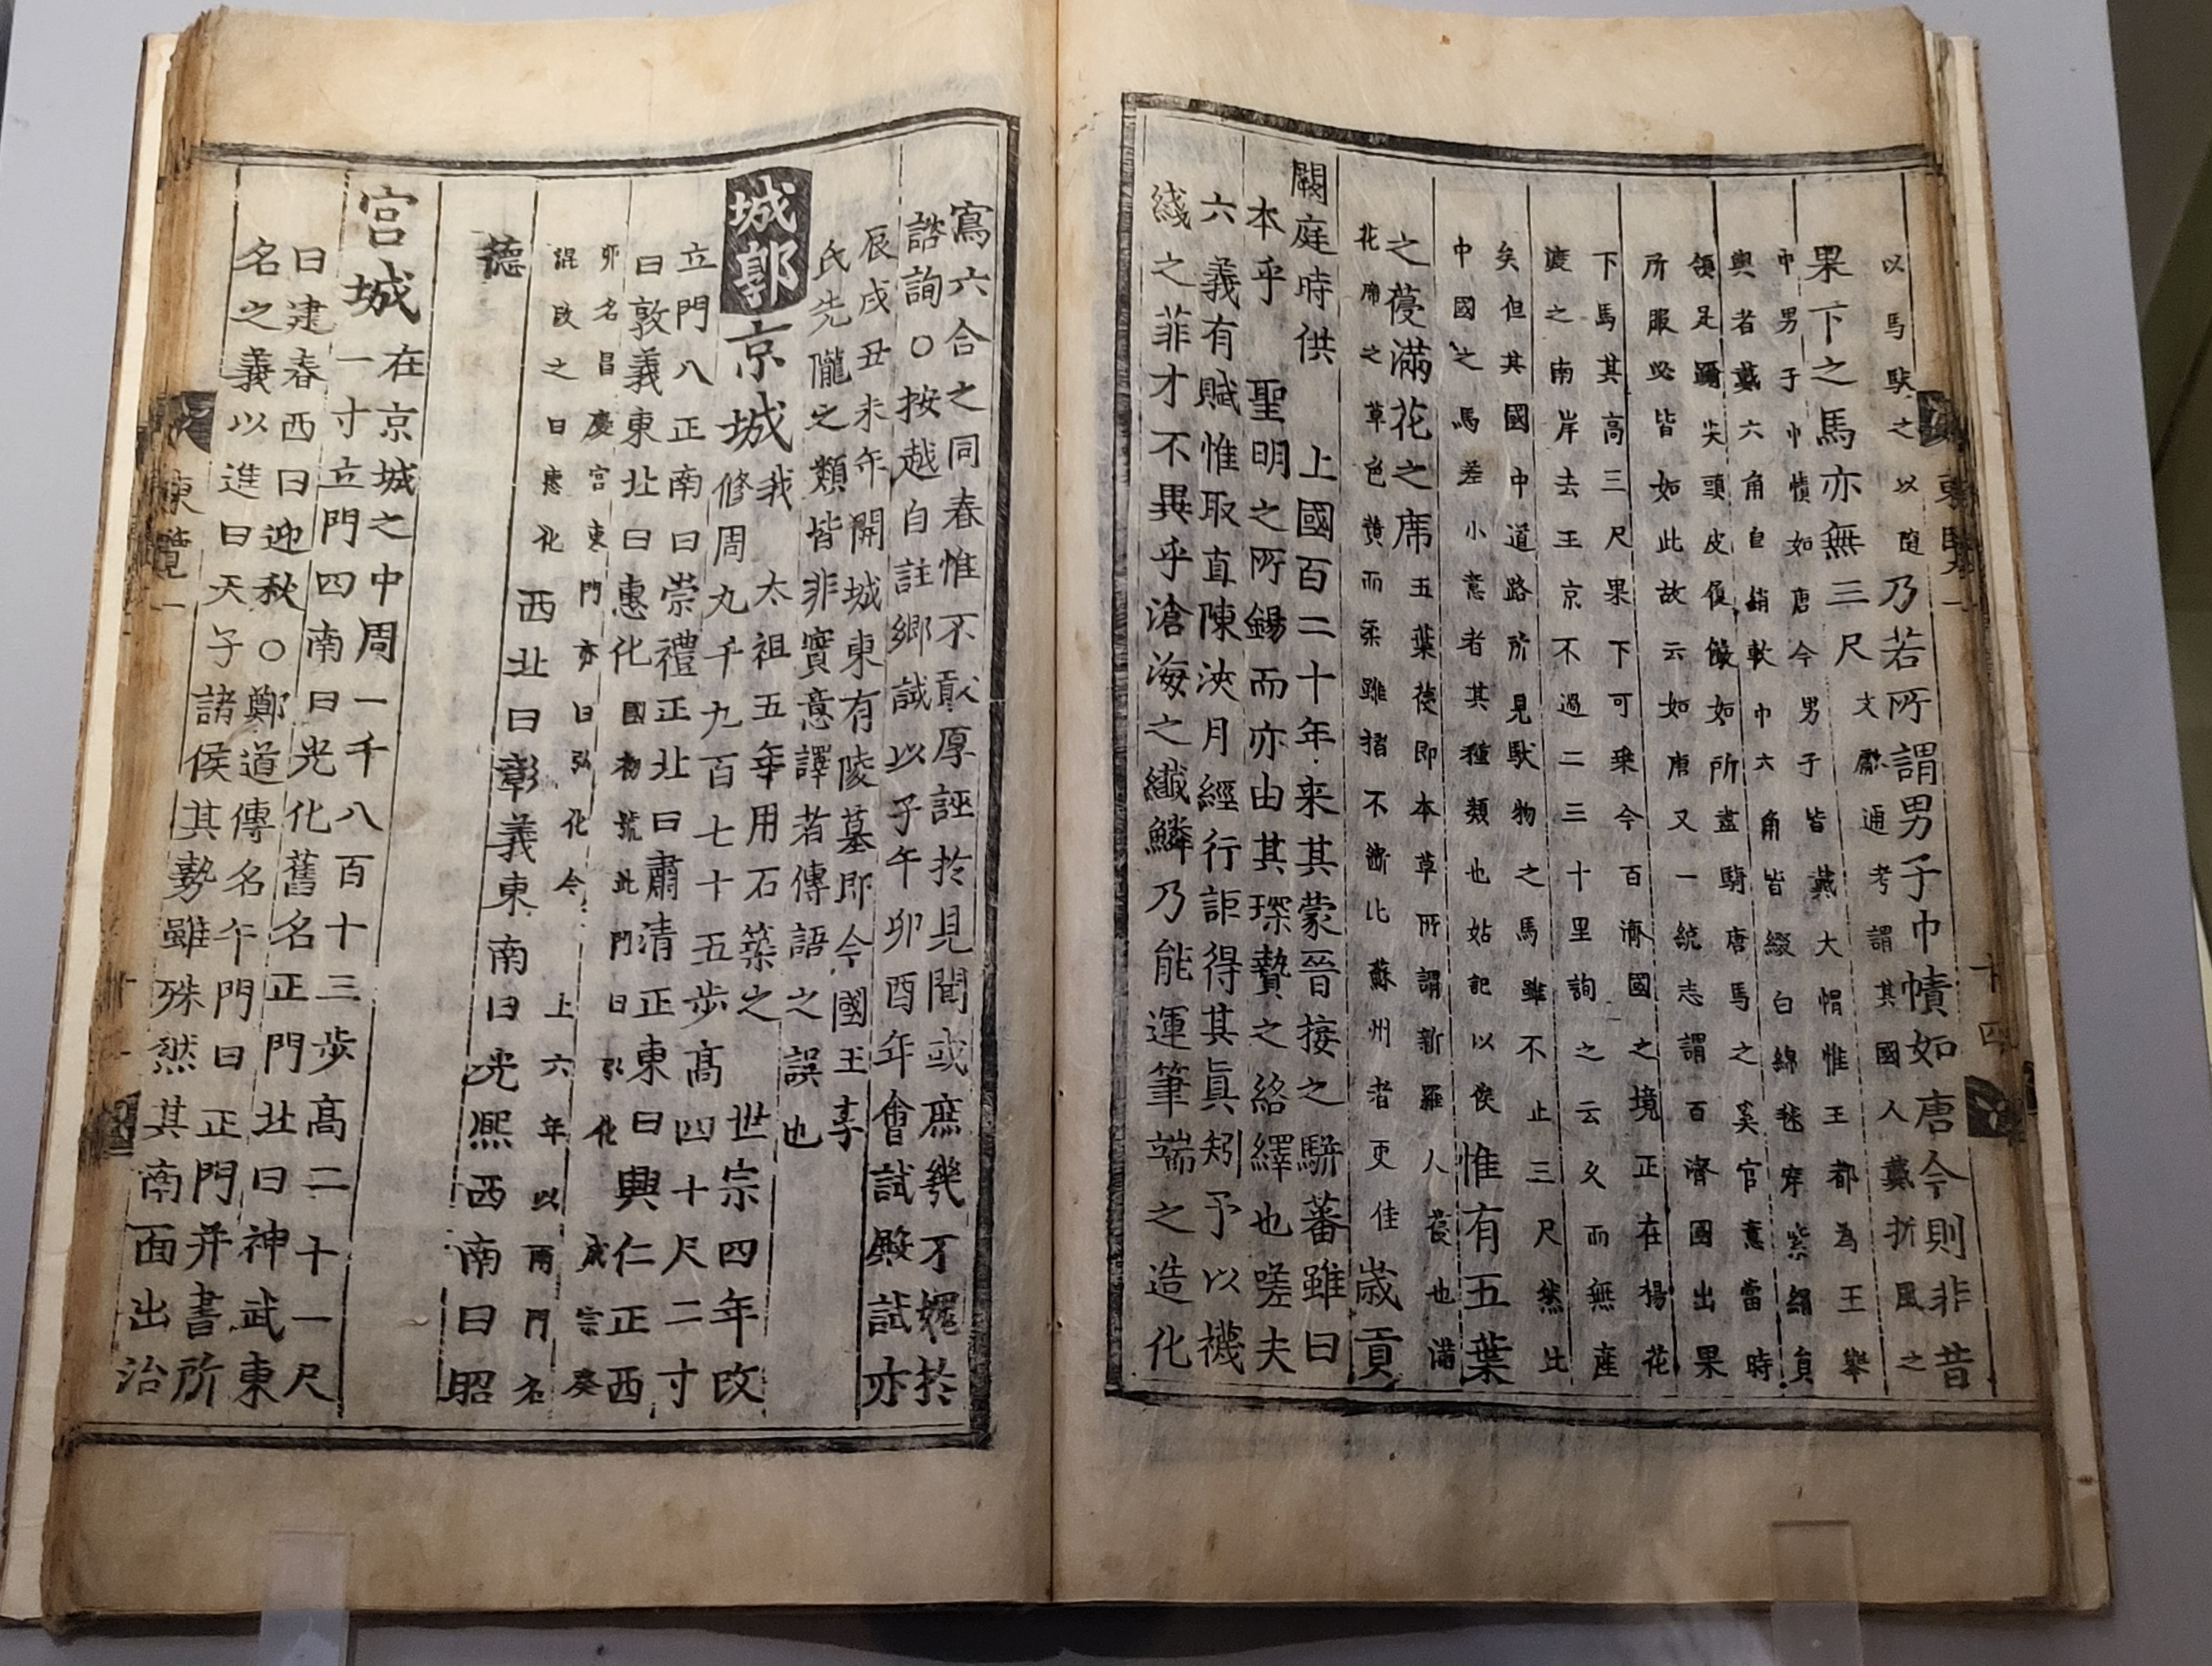 以馬駄之以隨乃若所謂男子巾幘如唐今則非昔
果下之馬亦無三尺文獻通考謂其國人戴折風之
巾男子巾幘如唐今男子皆戴大帽惟王都為王舉
輿者戴六角自綃軟巾六角皆綴白綿毬穿紫絹負
領足躡尖頭皮履儼如所畫騎唐馬之奚官意當時
所服必皆如此故云如唐又一統志謂百濟國出果
下馬其高三尺果下可乗今百濟國之境正在揚花
渡之南岸去王京不過二三十里詢之云久而無產
矣但其國中道路所見駄物之馬雖不止三尺然比
中國之馬差小意者其種類也姑記以俟惟有五葉
之葠滿花之席五葉葠即本草所謂新羅人葠也滿
花席之草色黄而柔雖摺不斷比蘇州者更佳歲貢
闕庭時供上國百二十年来其蒙晉接之駢蕃雖曰
本乎聖明之所錫而亦由其琛贄之絡繹也嗟夫
六義有賦惟取直陳浹月經行詎得其眞矧予以襪
綫之菲才不異乎滄海之纖鱗乃能運筆端之造化
寫六合之同春惟不敢厚誣扵見聞或庶幾不媿扵
諮詢○按越自註鄉試以子午卯酉年會試殿試亦
辰戌丑未年開城東有陵墓即今國王李
氏先隴之類皆非實意譯者傳語之誤也
城郭京城我太祖五年用石築之世宗四年改
修周九千九百七十五步高四十尺二寸
立門八正南曰崇禮正北曰肅清正東曰興仁正西
曰敦義東北曰惠化國初號此門曰弘化成宗癸
卯名昌慶宮東門亦曰弘化今上六年以兩門名
混改之曰惠化西北曰彰義東南曰光熙西南曰昭
德
宮城在京城之中周一千八百十三步高二十一尺
一寸立門四南曰光化舊名正門北曰神武東
曰建春西曰迎秋○鄭道傳名午門曰正門并書所
名之義以進曰天子諸侯其勢雖殊然其南面出治
東覽一